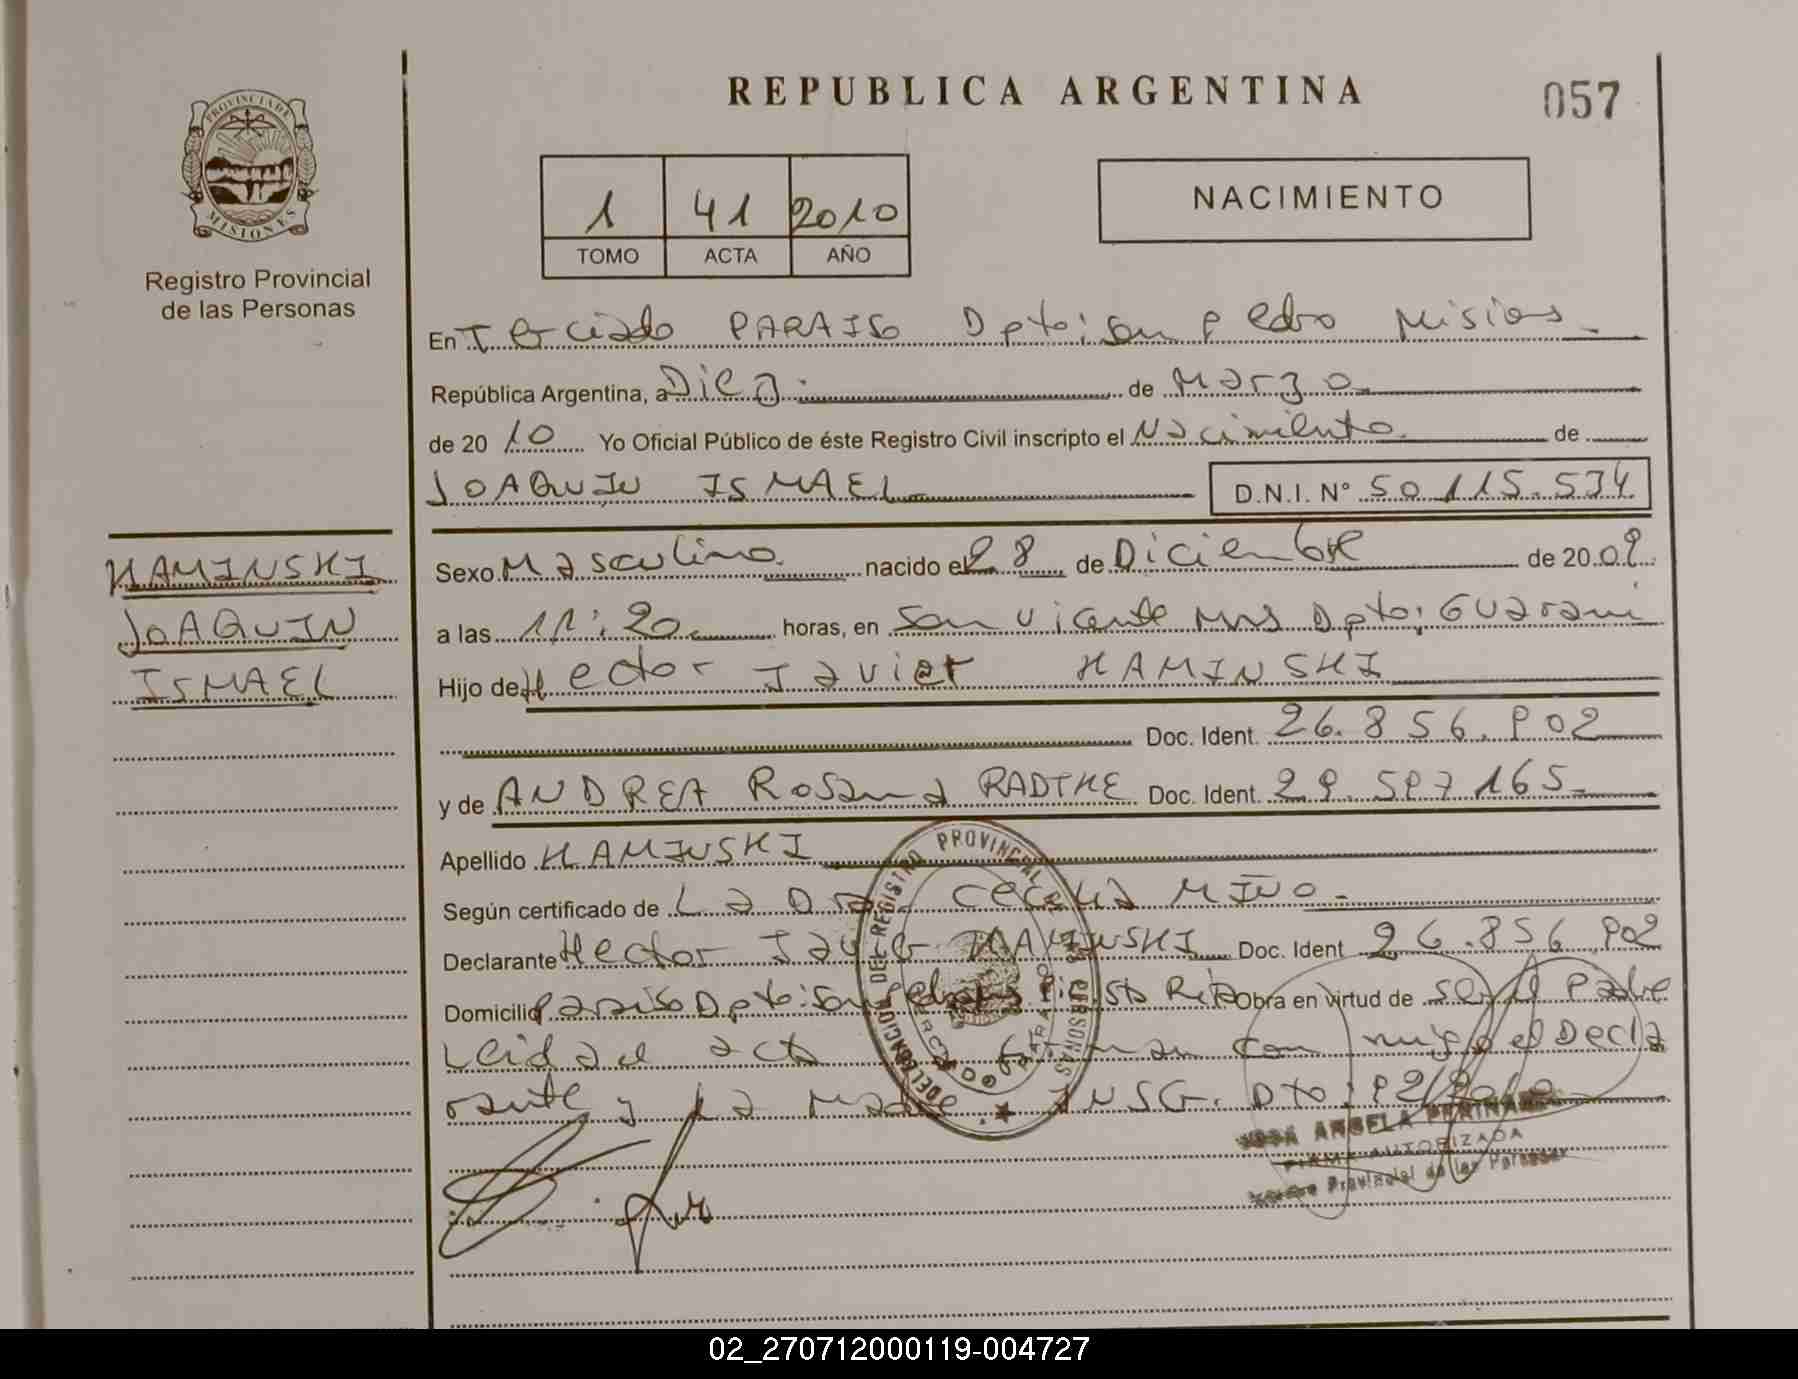 REPUBLICA ARGENTINA
057
PROVINCIA DE MISIONES
Registro Provincial
de las Personas
1 41 2010
TOMO ACTA AÑO
NACIMIENTO
En Terciado PARAISO Dpto: San Pedro Misiones
República Argentina, a Diez de Marzo
de 2010 Yo Oficial Público de éste Registro Civil inscripto el Nacimiento de
JOAQUIN ISMAEL D.N.I. N° 50.115.534
KAMINSKI
JOAQUIN
ISMAEL
Sexo Masculino nacido el 28 de Diciembre de 2009
a las 11:20 horas, en San Vicente Mns Dpto: Guarani
Hijo de Hector Javier KAMINSKI
Doc. Ident. 26.856.902
y de ANDREA Rosana RADTKE Doc. Ident. 29.597.165
Apellido KAMINSKI
Según certificado de La Dra Cecilia MIÑO
Declarante Hector Javier KAMINSKI Doc. Ident 26.856.902
Domicilio Paraiso Dpto: San Pedro Obra en virtud de ser el Padre
Leida el acta con migo el Decla
rante y La Madre INSC. Dto: 92/2010
DELEGACION DEL REGISTRO PROVINCIAL DE LAS PERSONAS
ROSA ANGELA
FIRMA AUTORIZADA
Registro Provincial de las Personas
02_270712000119-004727